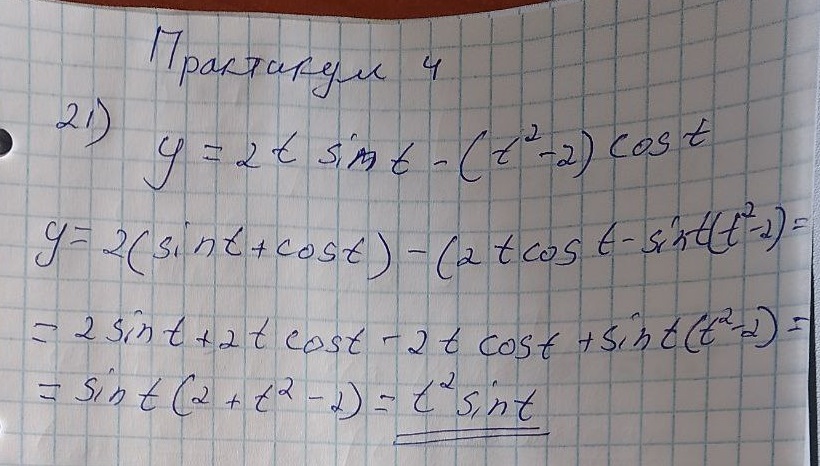 Практикум 4
21)
y = 2t sin t - (t² - 2) cos t
y = 2(sint + cost) - (2t cos t - sint(t² - 2) =
= 2 sint + 2t cost - 2t cost + sint(t² - 2) =
= sint(2 + t² - 2) = t² sint